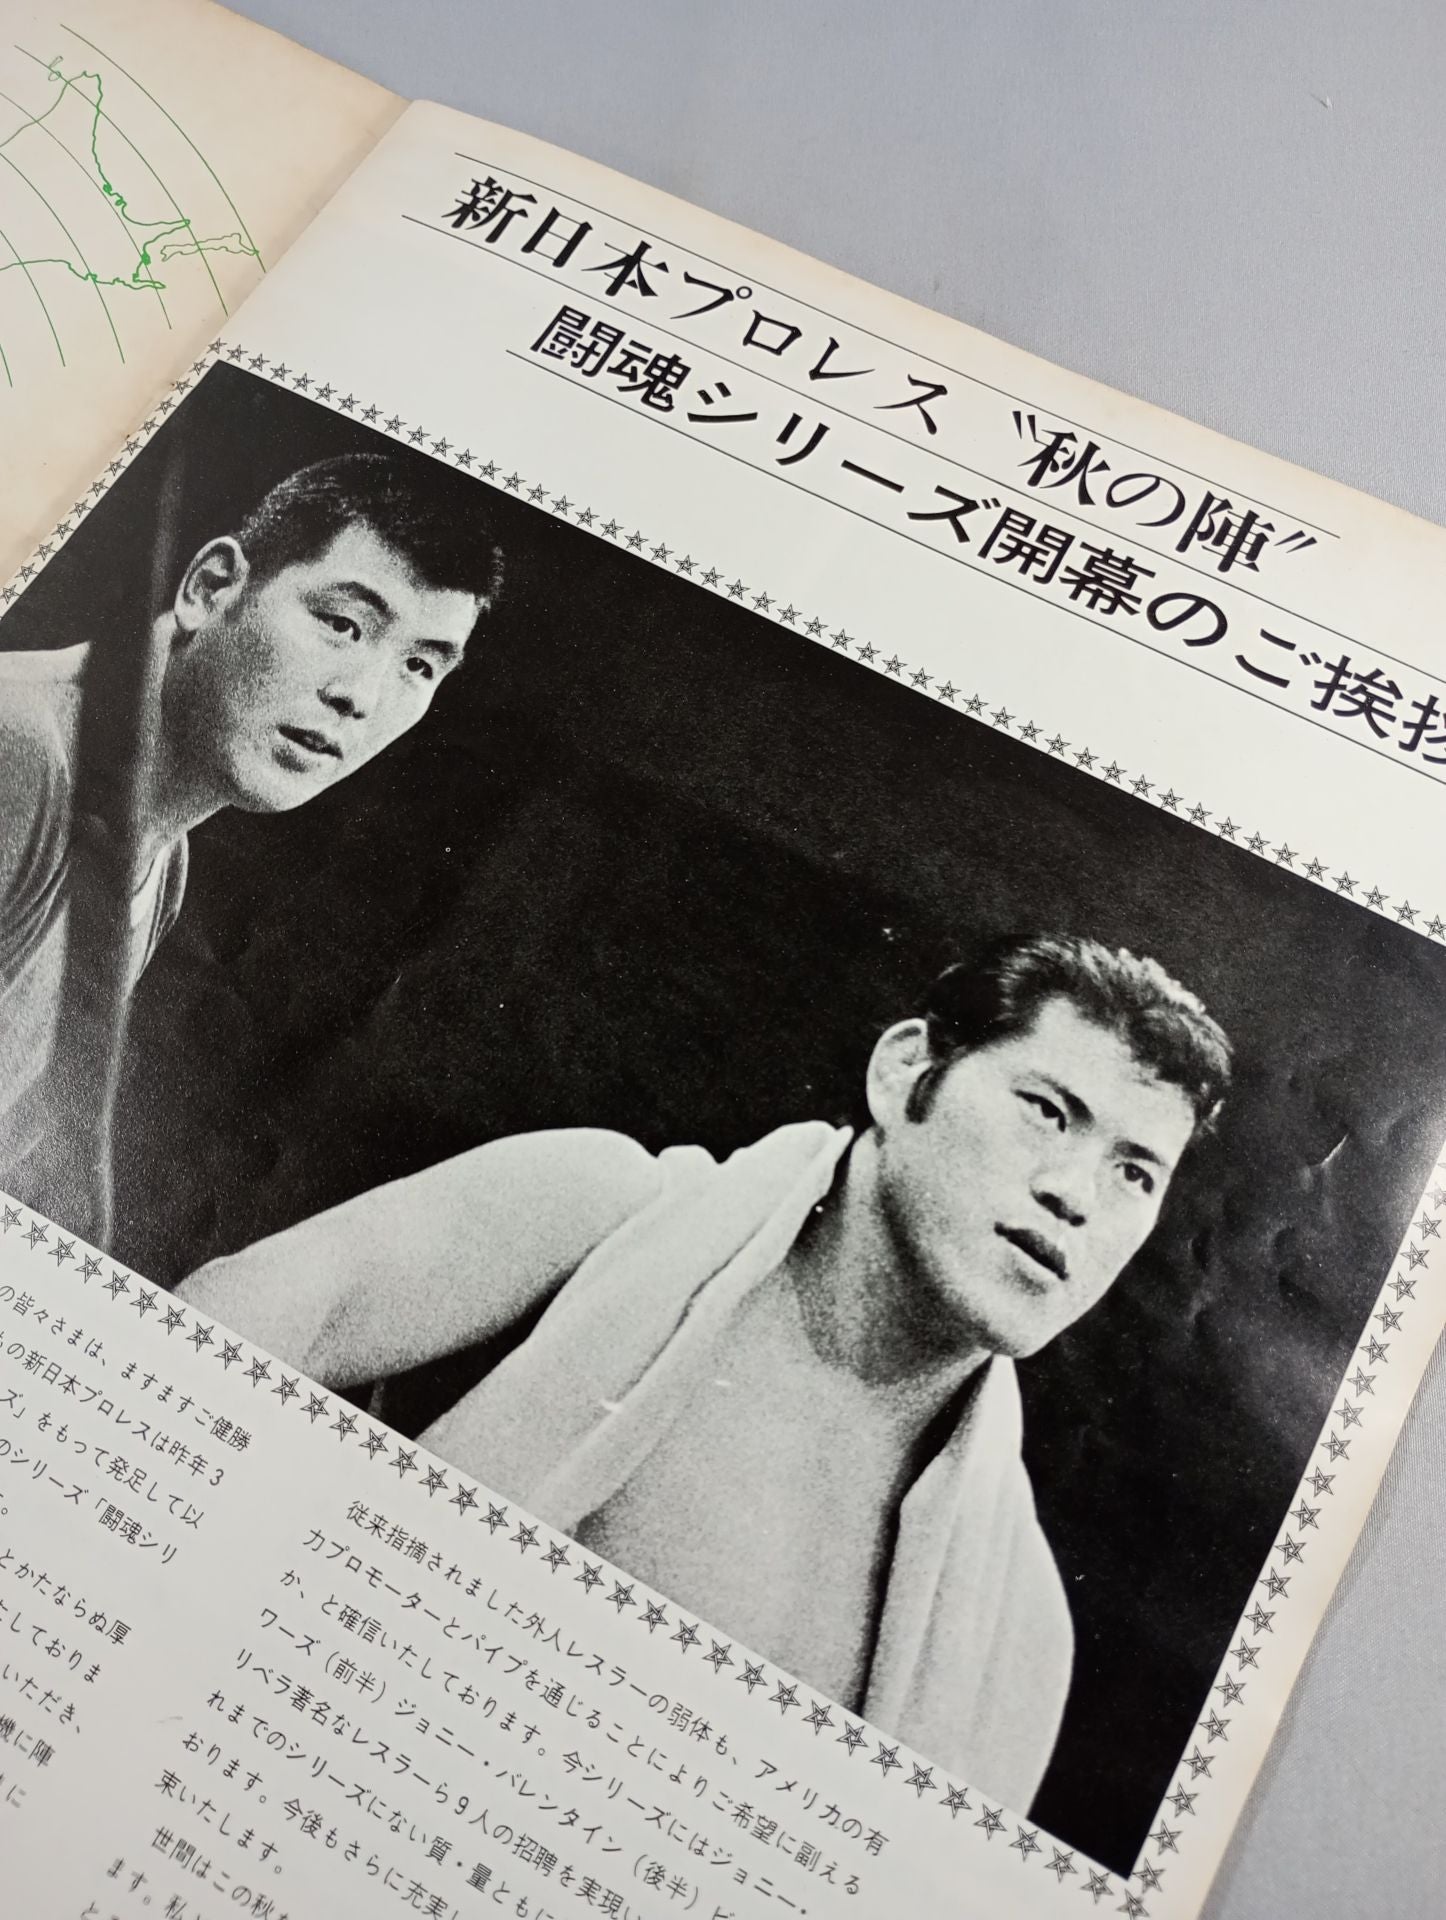 新日本プロレス〝秋の陣〟
闘魂シリーズ開幕のご挨拶
の皆々さまは、ますますご健勝
もの新日本プロレスは昨年3
ズ」をもって発足して以
のシリーズ「闘魂シリ
とかたならぬ厚
たしておりま
いただき、
機に陣
に
従来指摘されました外人レスラーの弱体も、アメリカの有
力プロモーターとパイプを通じることによりご希望に副える
か、と確信いたしております。今シリーズにはジョニー・
ワーズ（前半）ジョニー・バレンタイン（後半）ビ
リベラ著名なレスラーら9人の招聘を実現い
れまでのシリーズにない質・量ともに
おります。今後もさらに充実し
束いたします。
世間はこの秋
ます。私